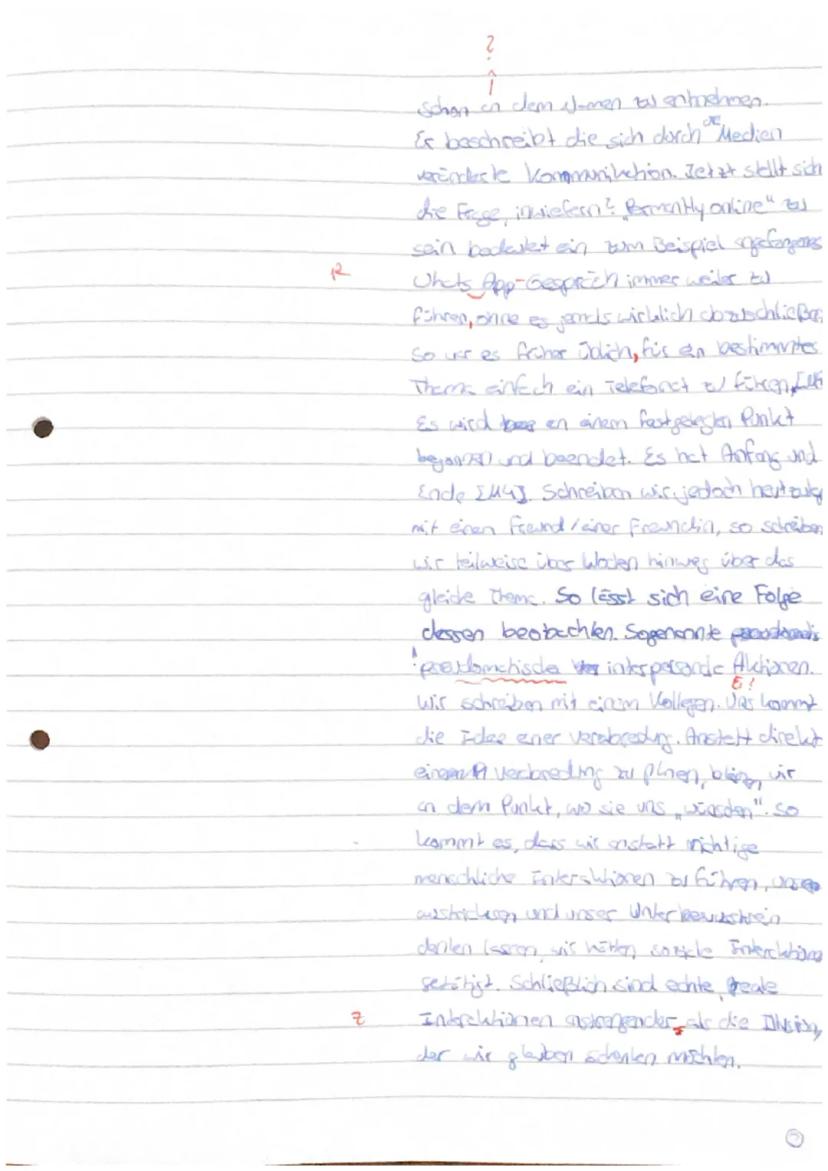 ?
schon an dem Namen zu entnehmen.
Es beschreibt die sich durch die Medien
veränderte Kommunikation. Jetzt stellt sich
die Frage, inwiefern? "Permantly online" zu
sein bedeutet ein zum Beispiel angefangenes
R
Whats App-Gespräch immer weiter zu
führen, ohne es jemals wirklich abzuschließen
So war es früher üblich, für ein bestimmtes
Thema einfach ein Telefonat zu führen,
Es wird an einem festgelegten Punkt
begonnen und beendet. Es hat Anfang und
Ende Schreiben wir jedoch heutzutage
mit einem Freund / einer Freundin, so schreiben
wir teilweise über Wochen hinweg über das
gleiche Thema. So lässt sich eine Folge
dessen beobachten. Sogenannte
Aktionen.
E!
Wir schreiben mit einem Kollegen. Uns kommt
die Idee einer Verabredung. Anstatt direkt
eine Verabredung zu planen, bleiben wir
an dem Punkt, wo sie uns So
kommt es, dass wir anstatt richtige
menschliche Interaktionen zu führen, unser
austricksen und unser Unterbewusstsein
denken lassen, wir hätten soziale Interaktion
getätigt. Schließlich sind echte, reale
Z
Interaktionen anstrengender, als die Illusion,
der wir glauben schenken möchten.